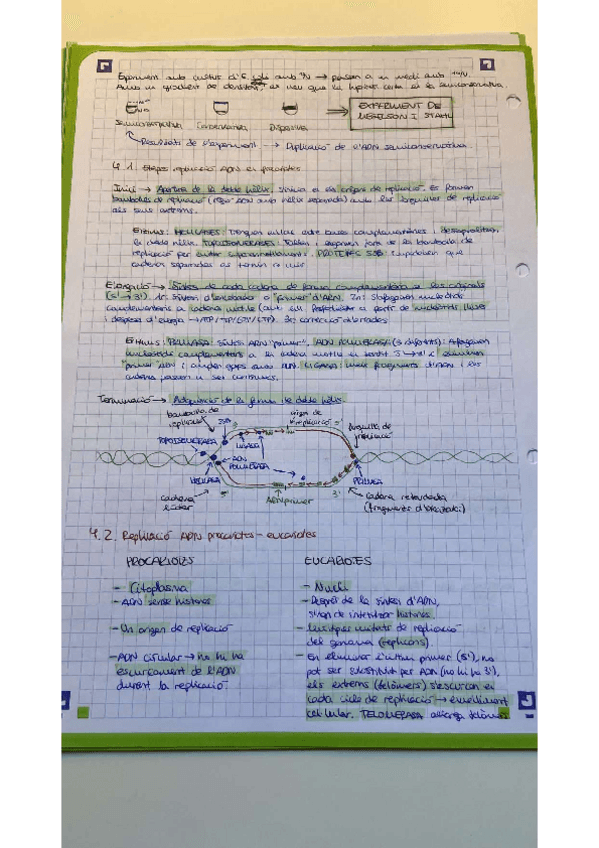 Experiment amb cultius d'E. coli amb ¹⁵N → passen a un medi amb ¹⁴N.
Amb un gradient de densitats, es veu que la hipòtesi certa és la semiconservativa
EXPERIMENT DE
MESELSON I STAHL
Semiconservativa Conservativa Dispersiva
Resultats de l'experiment → Duplicació de l'ADN semiconservativa.
4.1. Etapes replicació ADN en procariotes
Inici → Apertura de la doble hèlix, s'inicia en els orígens de replicació. Es formen
bombolles de replicació (regió ADN amb hèlix separada) amb les forquilles de replicació
als seus extrems.
Enzims: HELICASES: Trenquen enllaç entre bases complementàries i desespiralitzen
la doble hèlix. TOPOISOMERASES: Tallen i
replicació per evitar superenrotllaments. PROTEÏNES SSB: Impedeixen que
cadenes separades es tornin a unir
Elongació → Síntesi de cada cadena de forma complementària a les originals
(5'→3'). 1r: Síntesi d'encebador o "primer" d'ARN. 2n: S'afegeixen nucleòtids
complementaris a cadena motlle
i despesa d'energia → ATP/TTP/CTP/GTP). 3r: correcció d'errades
Enzims: PRIMASA: Síntesi ARN "primer". ADN POLIMERASA (3 diferents): Afegeixen
nucleòtids complementaris a la cadena motlle en sentit 5'→3' i eliminen
"primer" ARN i omplen gaps amb ADN. LIGASA: Uneix fragments d'ADN i les
cadenes passen a ser contínues.
Terminació → Adquisició de la forma de doble hèlix.
bombolla de
replicació
SSB
origen de
replicació
5'
forquilla de
replicació
TOPOISOMERASA
LIGASA
ADN
POLIMERASA
HELICASA
PRIMASA
cadena
líder
5'
ARN primer
3'
cadena retardada
(fragments d'Okazaki)
4.2. Replicació ADN procariotes - eucariotes
PROCARIOTES
- Citoplasma
- ADN sense histones
- Un origen de replicació
- ADN circular → no hi ha
escurçament de l'ADN
durant la replicació
EUCARIOTES
- Nucli
- Després de la síntesi d'ADN,
s'han de sintetitzar histones.
- Múltiples unitats de replicació
del genoma (replicons).
- En eliminar l'últim primer (5'), no
pot ser substituït per ADN (no hi ha 3'),
els extrems (telòmers) s'escurcen en
cada cicle de replicació → envelliment
cel·lular. TELOMERASA allarga telòmers